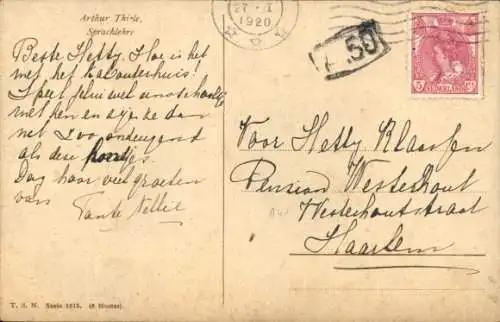 Arthur Thiele,
Sprachlehre
27 I
1920
Beste Hetty. Hoe is het
met het kabouterhuis!
Speel jullie wel eens schooltje
met hen en zijn ze dan
net zoo ondeugend
als deze hondjes.
Dag hoor veel groeten
van
Tante Nellie
.50
5 ct
NEDERLAND
Voor Hetty Klaasen
Pension Westerhout
Westerhoutstraat
Haarlem
T. S. N. Serie 1215. (6 Muster)